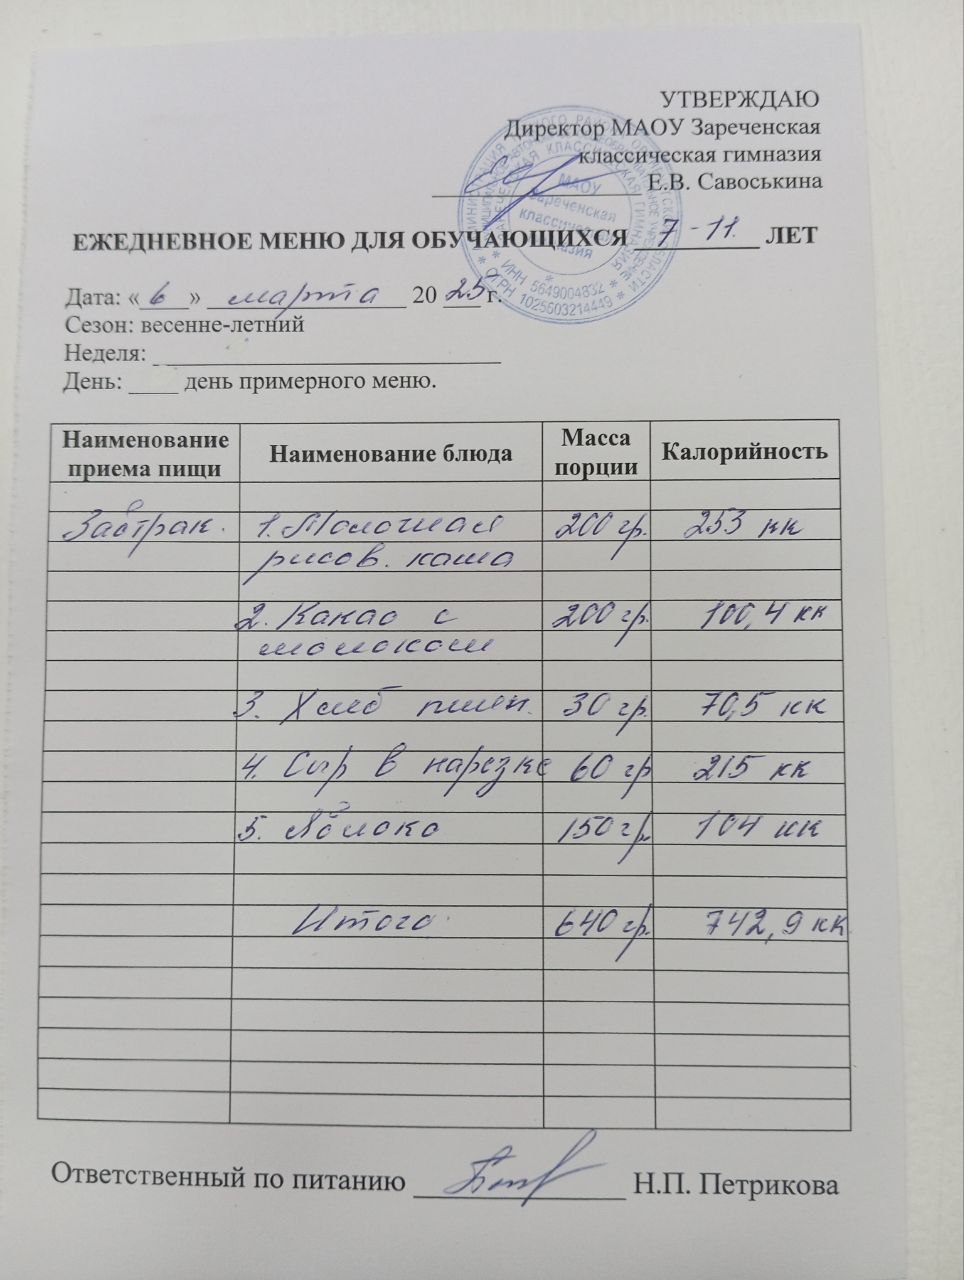 УТВЕРЖДАЮ
Директор МАОУ Зареченская
классическая гимназия
Е.В. Савоськина
МАОУ
Зареченская
классическая
гимназия
* ИНН 5649004832 *
* ОГРН 1025603214449 *
ЕЖЕДНЕВНОЕ МЕНЮ ДЛЯ ОБУЧАЮЩИХСЯ 7-11. ЛЕТ
Дата: «6» марта 2025 г.
Сезон: весенне-летний
Неделя:
День: ____ день примерного меню.
Наименование приема пищи Наименование блюда Масса порции Калорийность
Завтрак. 1. Молочная 200 гр. 253 кк
рисов. каша
2. Какао с 200 гр. 100,4 кк
молоком
3. Хлеб пшен. 30 гр. 70,5 кк
4. Сыр в нарезке 60 гр 215 кк
5. Яблоко 150 гр. 104 кк
Итого 640 гр. 742,9 кк
Ответственный по питанию Н.П. Петрикова